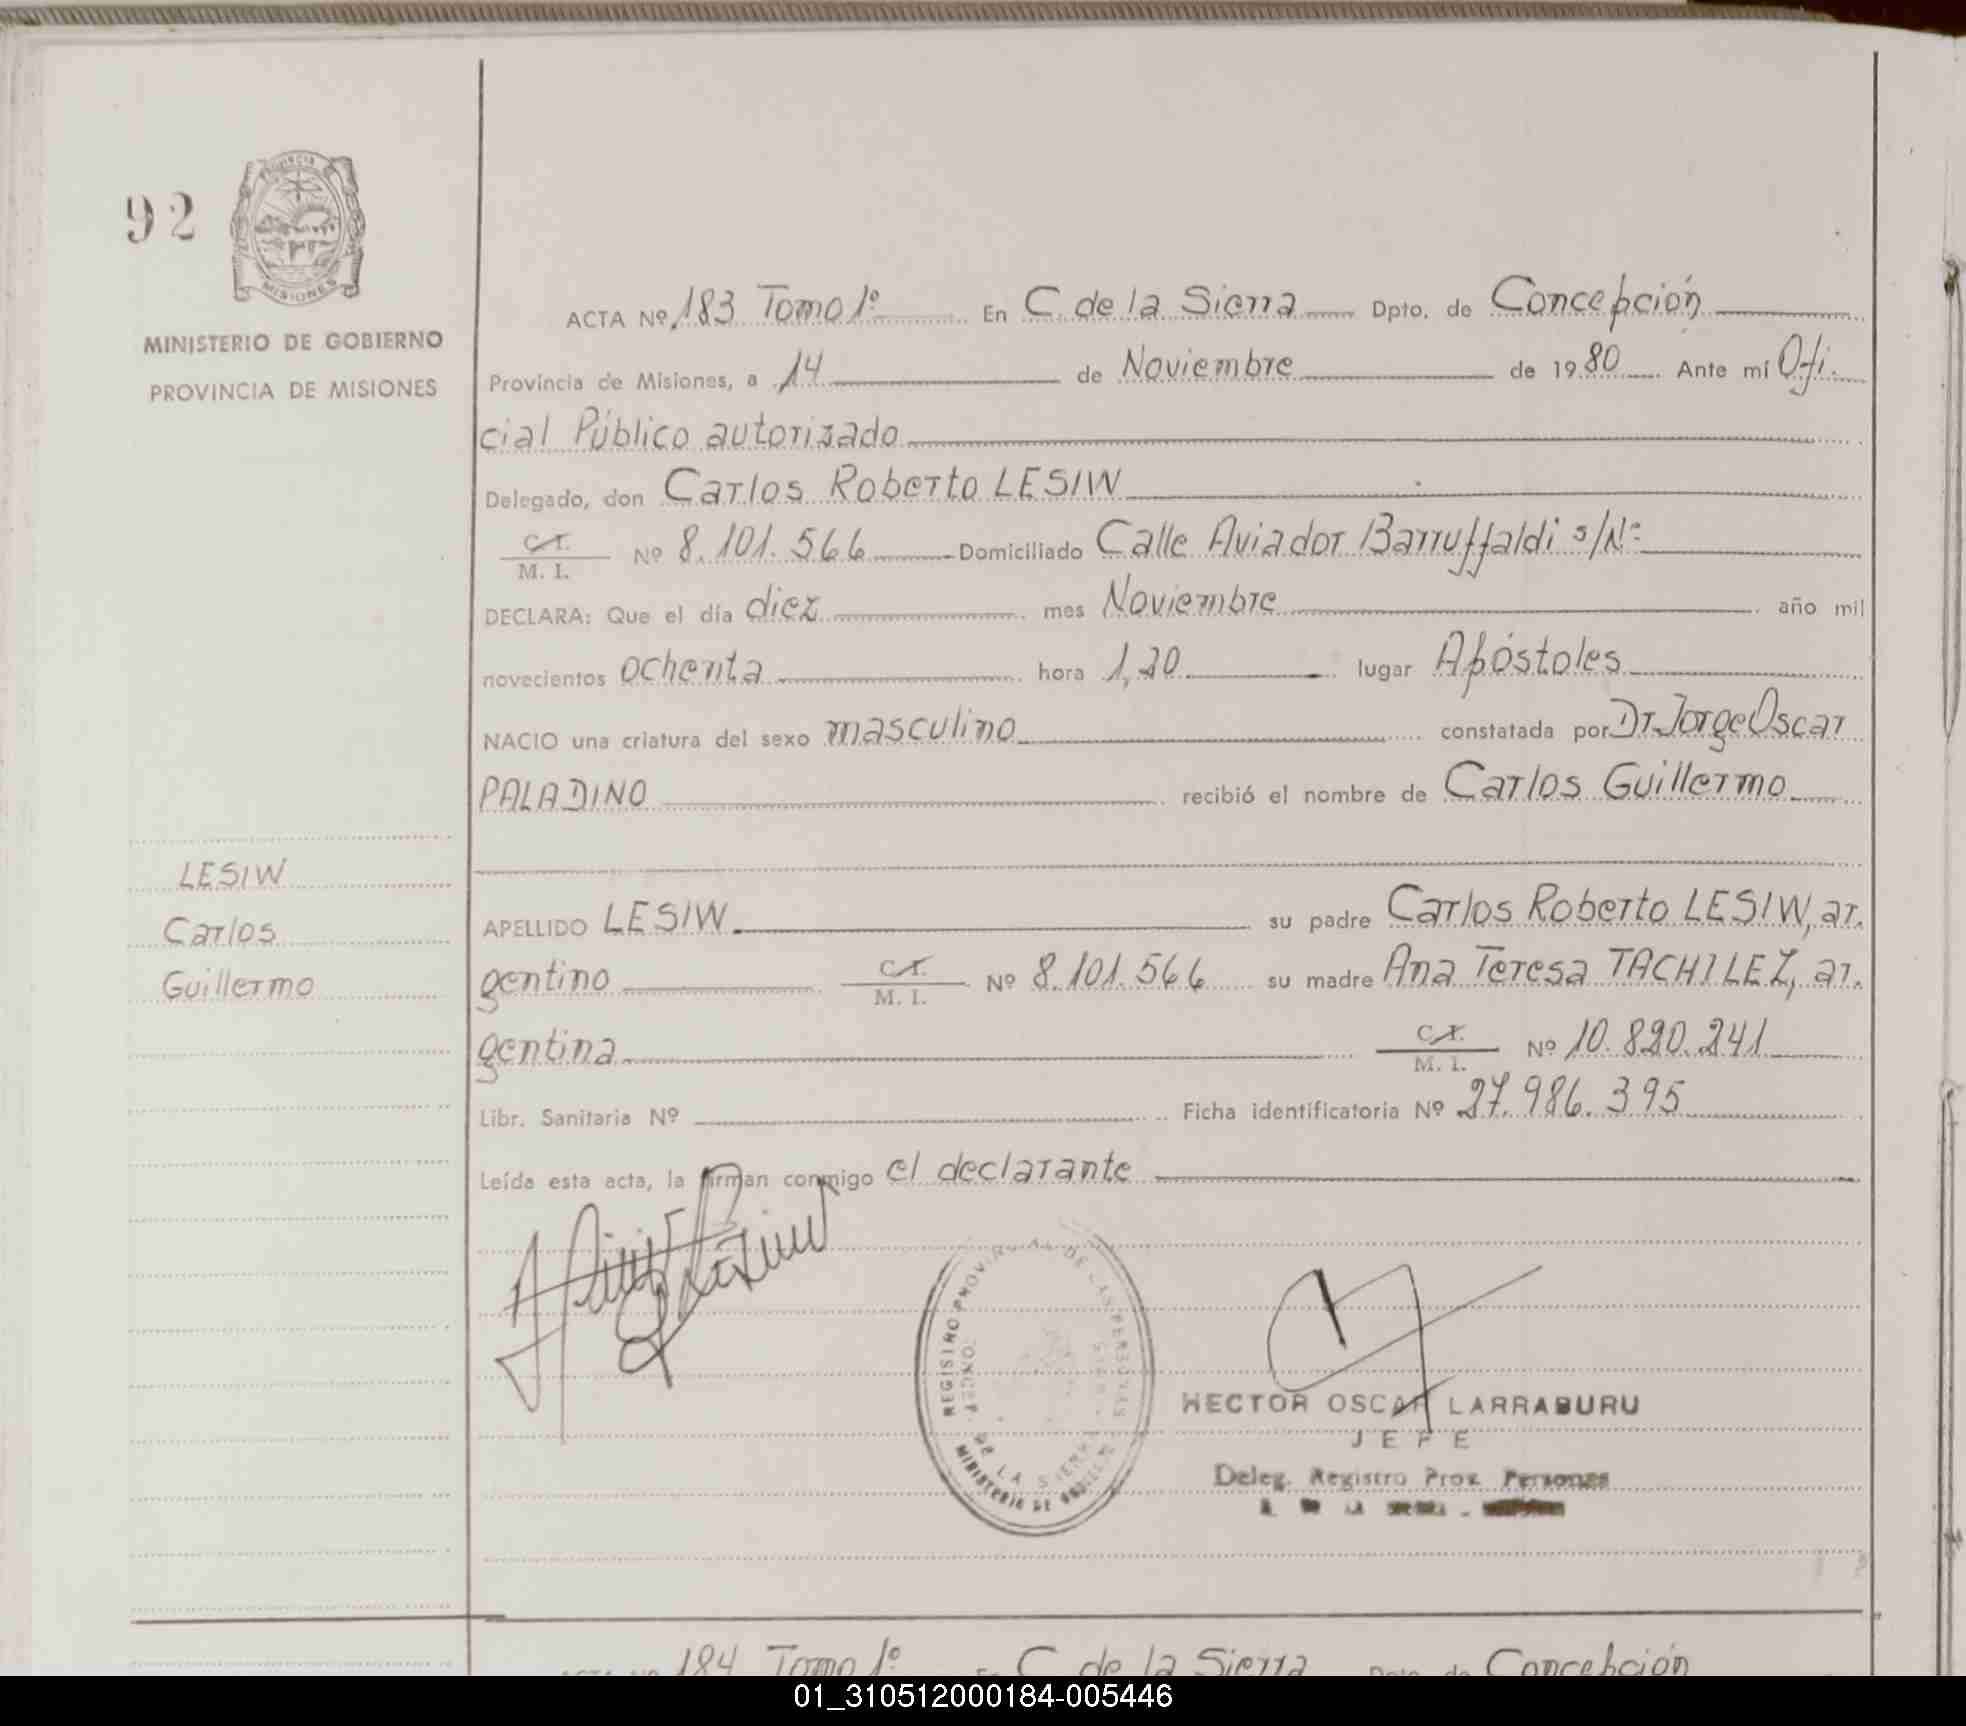 92
PROVINCIA
MISIONES
MINISTERIO DE GOBIERNO
PROVINCIA DE MISIONES
ACTA Nº 183 Tomo 1º En C. de la Sierra Dpto. de Concepción
Provincia de Misiones, a 14 de Noviembre de 1980 Ante mí Ofi.
cial Público autorizado
Delegado, don Carlos Roberto LESIW
C.I.
M. I. Nº 8.101.566 Domiciliado Calle Aviador Barruffaldi s/Nº
DECLARA: Que el día diez mes Noviembre año mil
novecientos ochenta hora 1,20 lugar Apóstoles
NACIO una criatura del sexo masculino constatada por Dr Jorge Oscar
PALADINO recibió el nombre de Carlos Guillermo
LESIW
Carlos
Guillermo
APELLIDO LESIW su padre Carlos Roberto LESIW, ar.
gentino C.I. M. I. Nº 8.101.566 su madre Ana Teresa TACHILEZ, ar.
gentina C.I. M. I. Nº 10.820.241
Libr. Sanitaria Nº Ficha identificatoria Nº 27.986.395
Leída esta acta, la firman conmigo el declarante
REGISTRO PROVINCIAL DE LAS PERSONAS
DE LA SIERRA
MINISTERIO DE GOBIERNO
HECTOR OSCAR LARRABURU
JEFE
Deleg. Registro Prov. Personas
ACTA Nº 184 Tomo 1º En C. de la Sierra Dpto. de Concepción
01_310512000184-005446